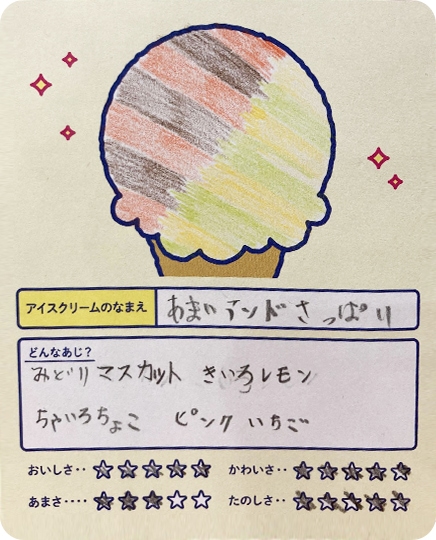 アイスクリームのなまえ あまいアンドさっぱり
どんなあじ?
みどりマスカット きいろレモン
ちゃいろちょこ ピンクいちご
おいしさ‥ ★★★★★ かわいさ‥ ★★★★★
あまさ‥‥ ★★★☆☆ たのしさ‥ ★★★★★